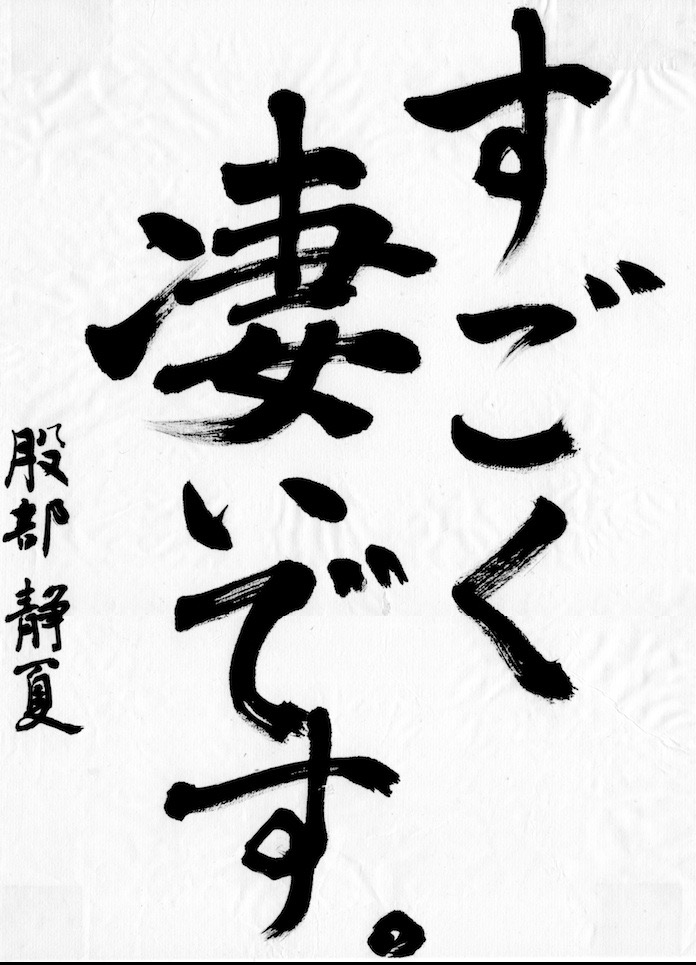 すごく
凄いです。
股部 静夏